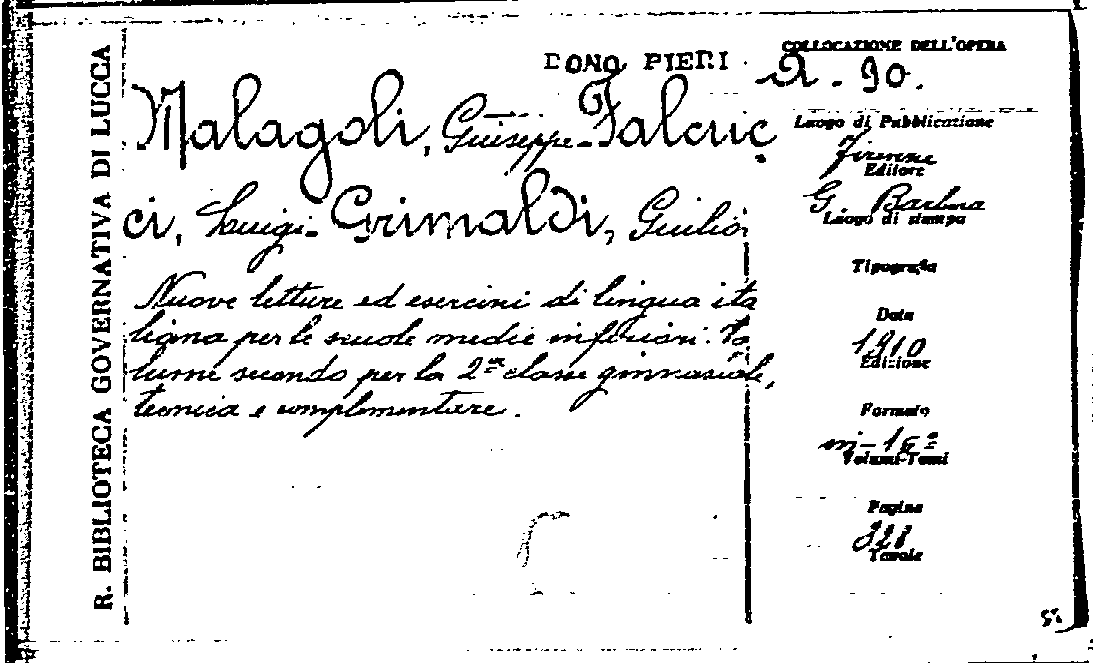 R. BIBLIOTECA GOVERNATIVA DI LUCCA
DONO PIERI
Malagoli, Giuseppe - Falcuc
ci, Luigi - Grimaldi, Giulio
Nuove letture ed esercizi di lingua ita
liana per le scuole medie inferiori. Vo
lume secondo per la 2ª classe ginnasiale,
tecnica e complementare.
COLLOCAZIONE DELL'OPERA
A - 90.
Luogo di Pubblicazione
Firenze
Editore
G. Barbera
Luogo di stampa
Tipografia
Data
1910
Edizione
Formato
in-16º
Volumi-Tomi
Pagine
Tavole